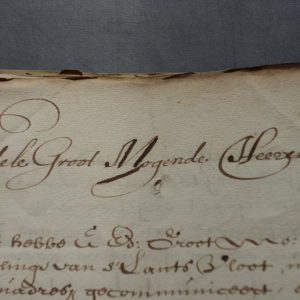 ele Groot Mogende Heere
hebbe U Ed: Groot Mo:
inge van s'Lants Vloot
quadres, gecommuniceert